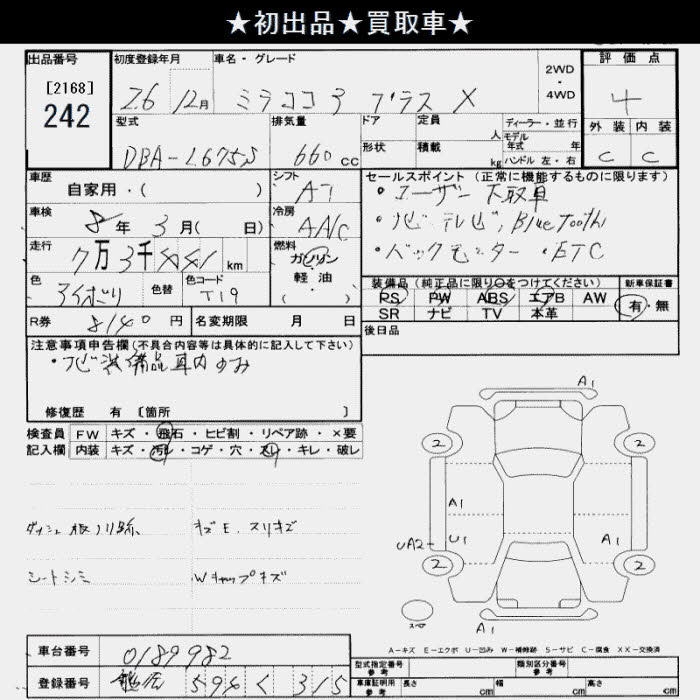 ★初出品★買取車★
出品番号
[2168]
242
初度登録年月
26 12月
車名・グレード
ミラココア プラス X
2WD
・
4WD
評価点
4
外装 内装
C C
型式
DBA-L675S
排気量
660 cc
ドア
形状
定員 人
積載 kg
ディーラー・並行
モデル
年式 年
ハンドル 左・右
車歴
自家用・( )
シフト
AT
セールスポイント (正常に機能するものに限ります)
・ユーザー下取車
・ナビ テレビ, Bluetooth
・バックモニター ・ETC
車検
8年 3月( 日)
冷房
A/C
走行
7万3千 km
燃料
ガソリン
・軽油・
( )
色
色替
色コード
T19
装備品 (純正品に限り○をつけてください)
PS PW ABS エアB AW
SR ナビ TV 本革
新車保証書
有・無
R券
8140 円
名変期限 月 日
後日品
注意事項申告欄 (不具合内容等は具体的に記入して下さい)
・ナビ装備品車内のみ
修復歴 有 〔箇所 〕
検査員
記入欄
FW キズ・飛石・ヒビ割・リペア跡・×要
内装 キズ・汚レ・コゲ・穴・スレ・キレ・破レ
ダッシュ板ノリ跡
キズE. スリキズ
シートシミ
Wキャップキズ
A1
2
2
A1
UA2
U1
A1
2
2
A1
スペア
A-キズ E-エクボ U-凹み W-補修跡 S-サビ C-腐食 XX-交換済
車台番号
0189982
登録番号
594 く 315
型式指定番号
参考
類別区分番号
参考
車庫証明用
参考
長さ cm
幅 cm
高さ cm